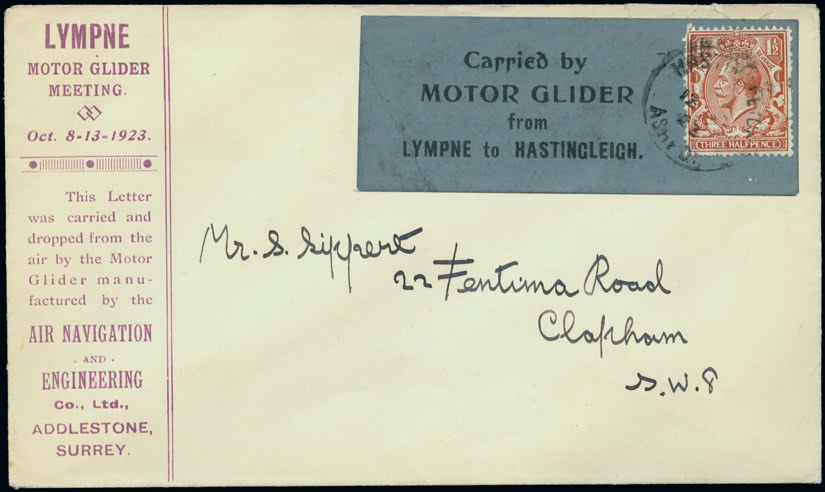 LYMPNE
MOTOR GLIDER
MEETING.
Oct. 8-13-1923.
This Letter
was carried and
dropped from the
air by the Motor
Glider manu-
factured by the
AIR NAVIGATION
· AND ·
ENGINEERING
Co., Ltd.,
ADDLESTONE,
SURREY.
Carried by
MOTOR GLIDER
from
LYMPNE to HASTINGLEIGH.
1½
THREE HALFPENCE
Mr. S. Sippert
22 Fentima Road
Clapham
S.W.8